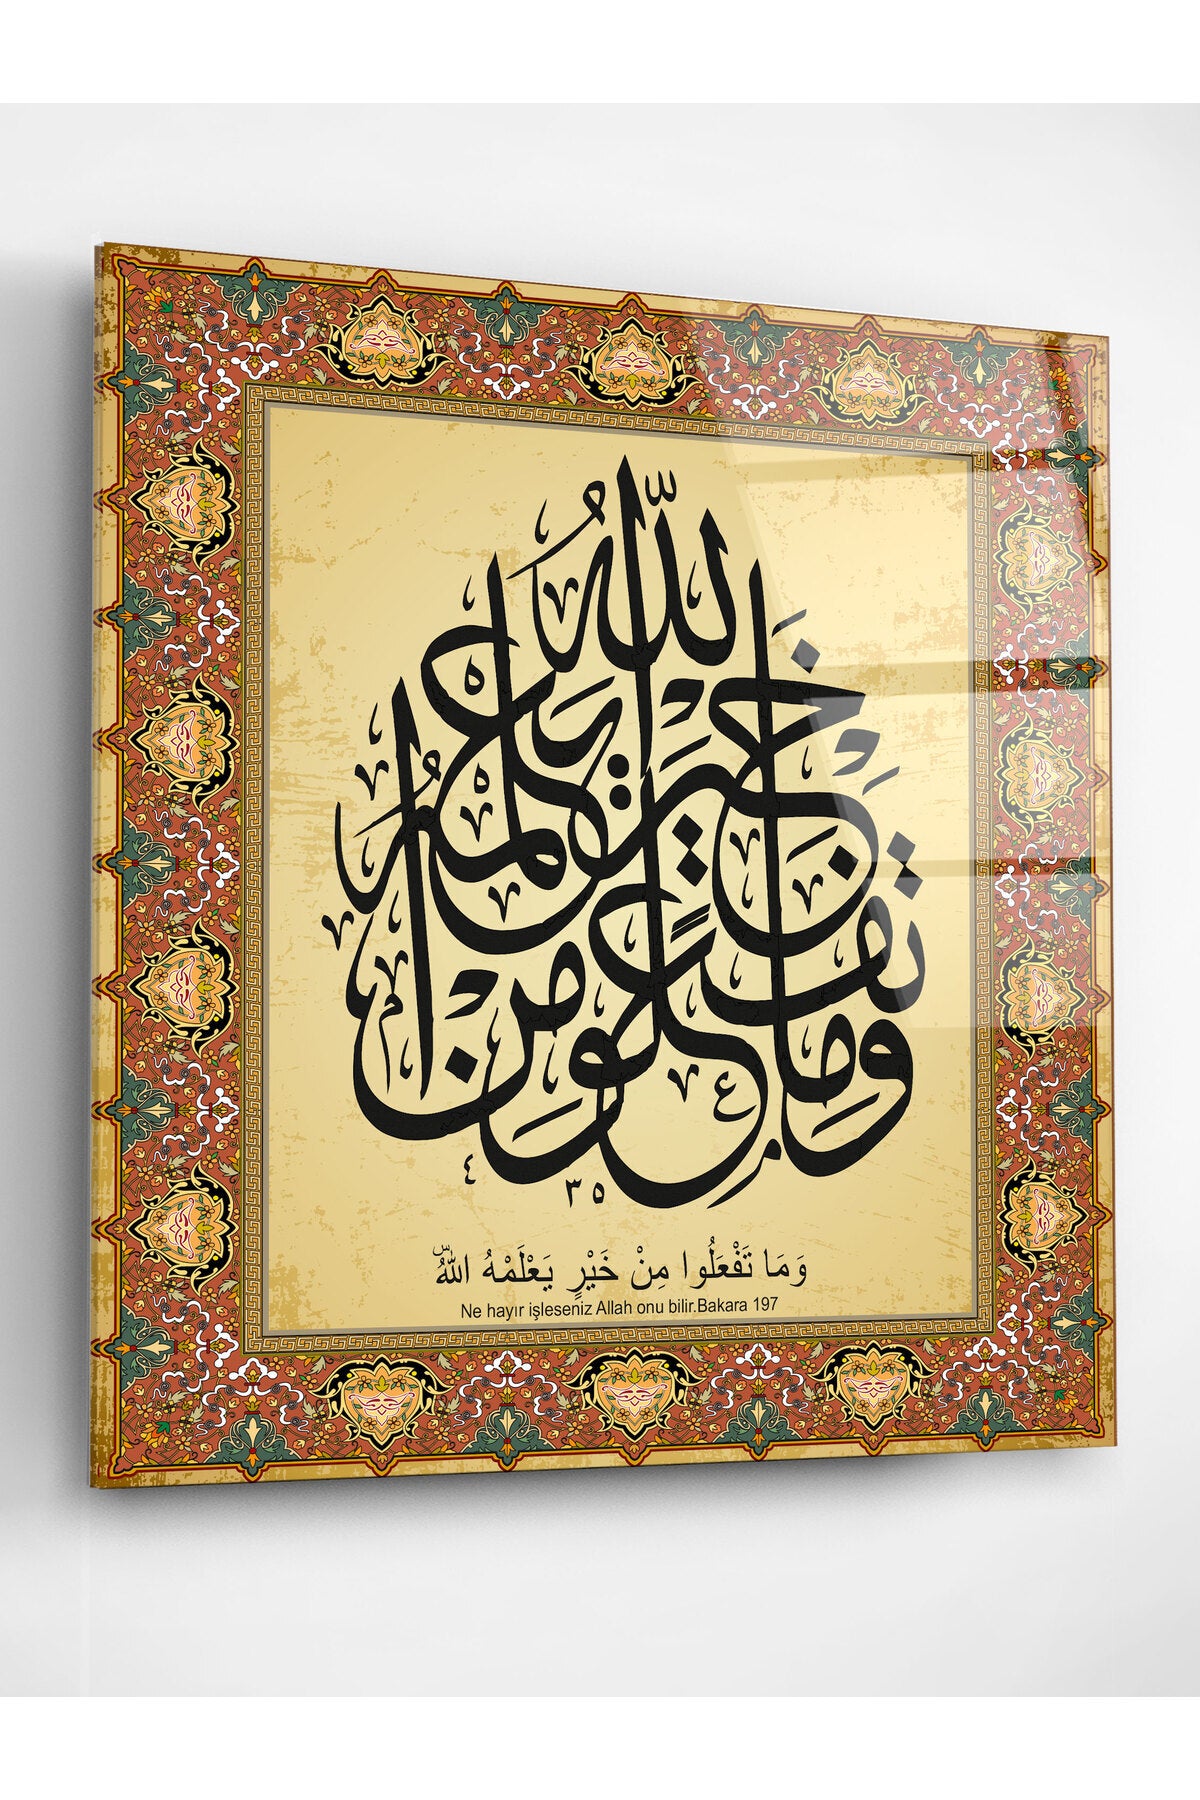 وما تفعلوا من خير يعلمه الله
وَمَا تَفْعَلُوا مِنْ خَيْرٍ يَعْلَمْهُ اللّٰهُ
Ne hayır işleseniz Allah onu bilir.Bakara 197